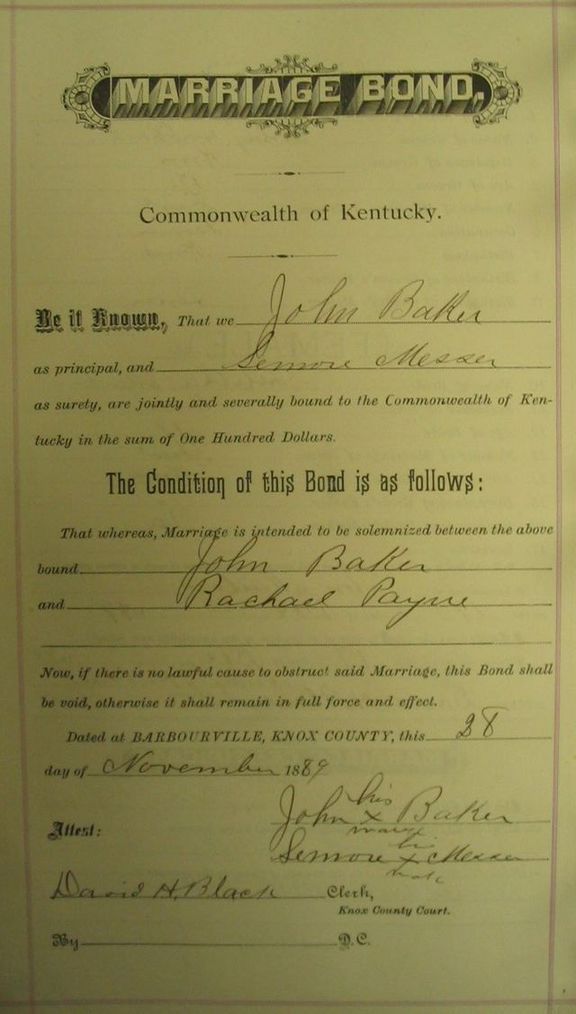 MARRIAGE BOND.
Commonwealth of Kentucky.
Be it Known, That we John Baker
as principal, and Semore Messer
as surety, are jointly and severally bound to the Commonwealth of Ken-
tucky in the sum of One Hundred Dollars.
The Condition of this Bond is as follows:
That whereas, Marriage is intended to be solemnized between the above
bound John Baker
and Rachael Payne
Now, if there is no lawful cause to obstruct said Marriage, this Bond shall
be void, otherwise it shall remain in full force and effect.
Dated at BARBOURVILLE, KNOX COUNTY, this 28
day of November 1889
his
John x Baker
Attest:
mark
his
Semore x Messer
mark
David H. Black Clerk,
Knox County Court.
By D.C.